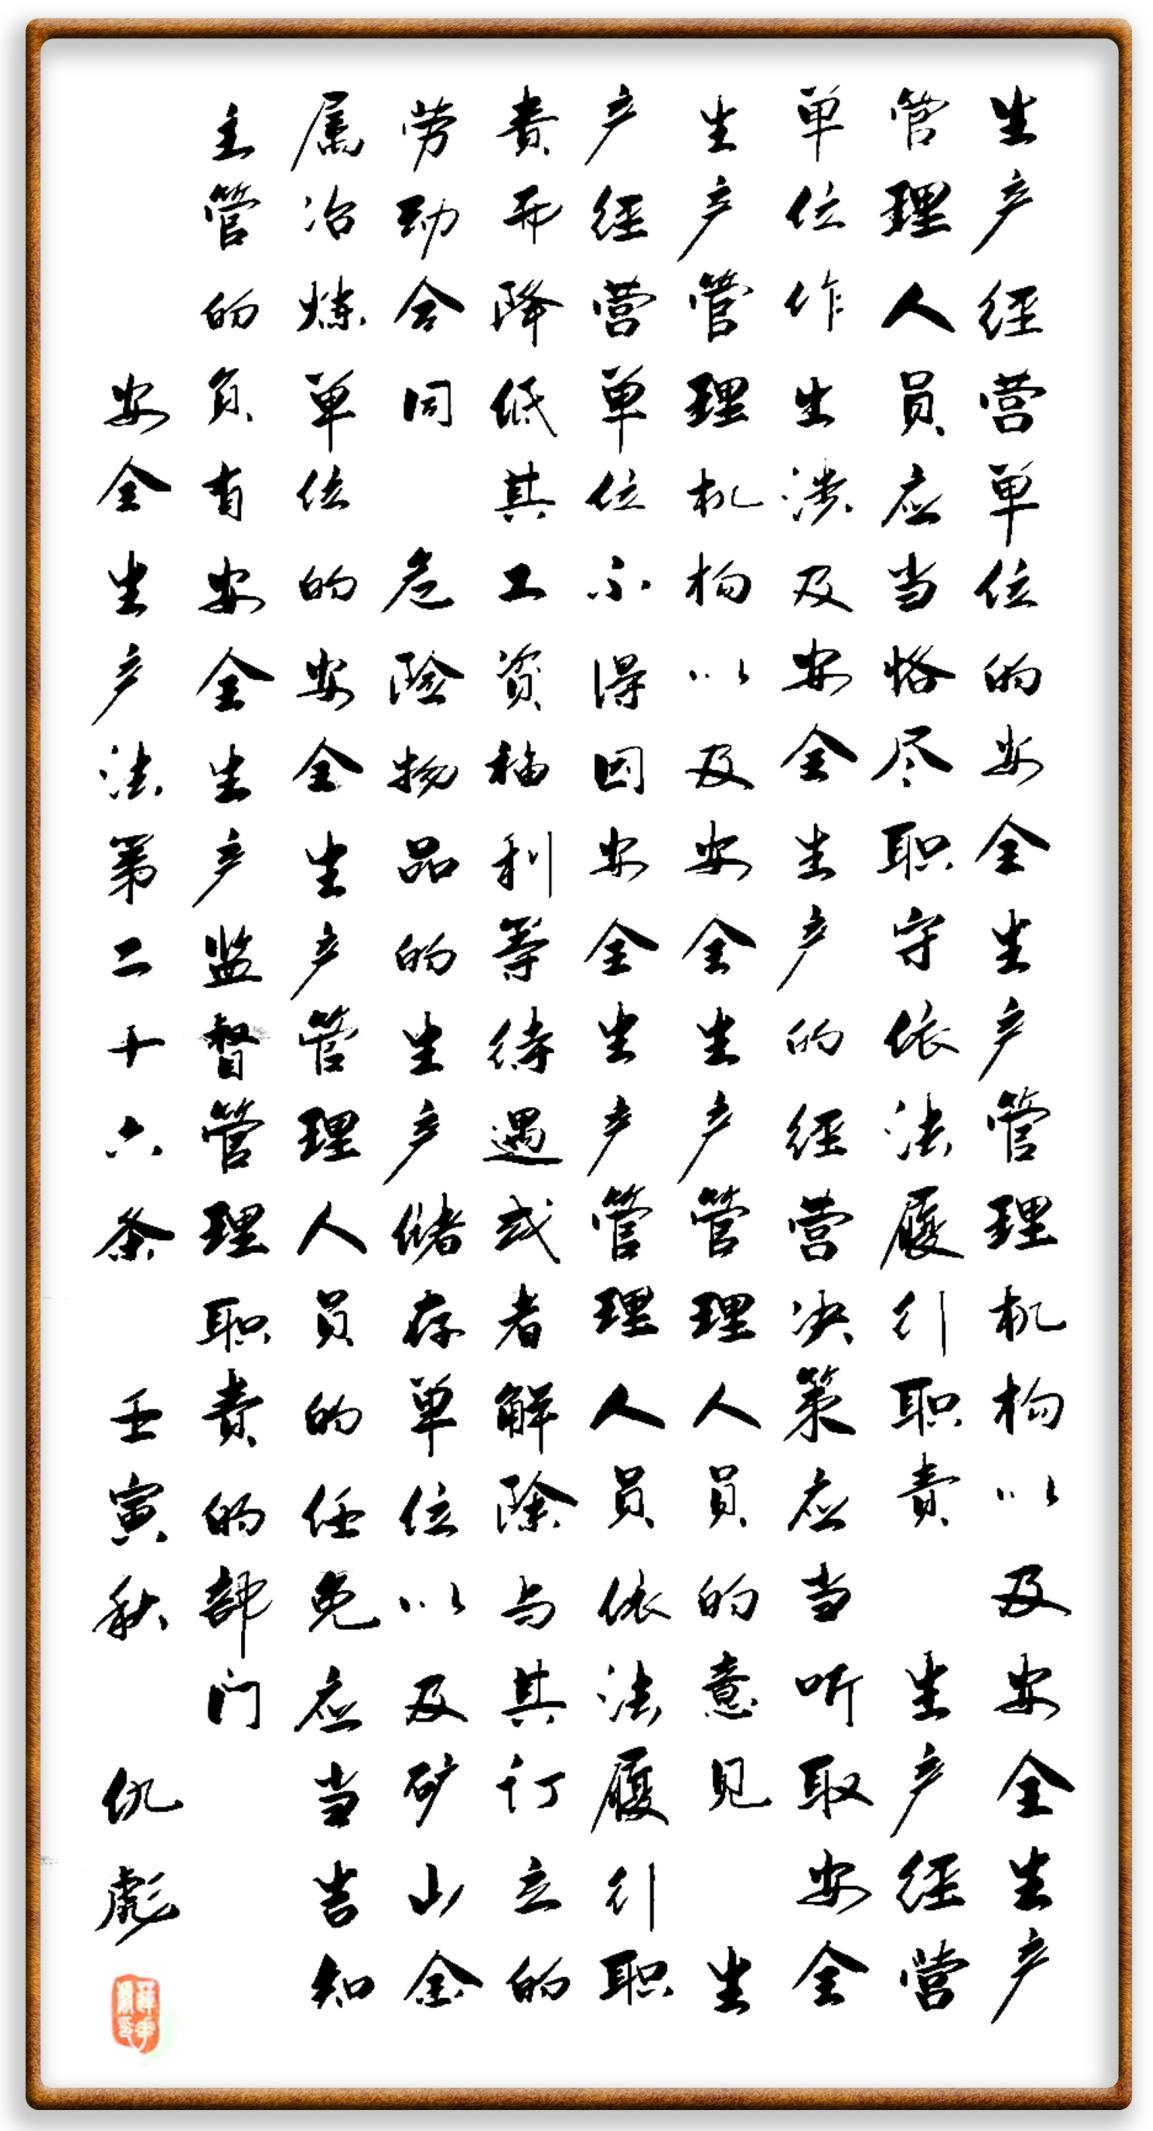 生产经营单位的安全生产管理机构以及安全生产
管理人员应当恪尽职守依法履行职责 生产经营
单位作出涉及安全生产的经营决策应当听取安全
生产管理机构以及安全生产管理人员的意见 生
产经营单位不得因安全生产管理人员依法履行职
责而降低其工资福利等待遇或者解除与其订立的
劳动合同 危险物品的生产储存单位以及矿山金
属冶炼单位的安全生产管理人员的任免应当告知
主管的负有安全生产监督管理职责的部门
安全生产法第二十六条 壬寅秋 仇彪